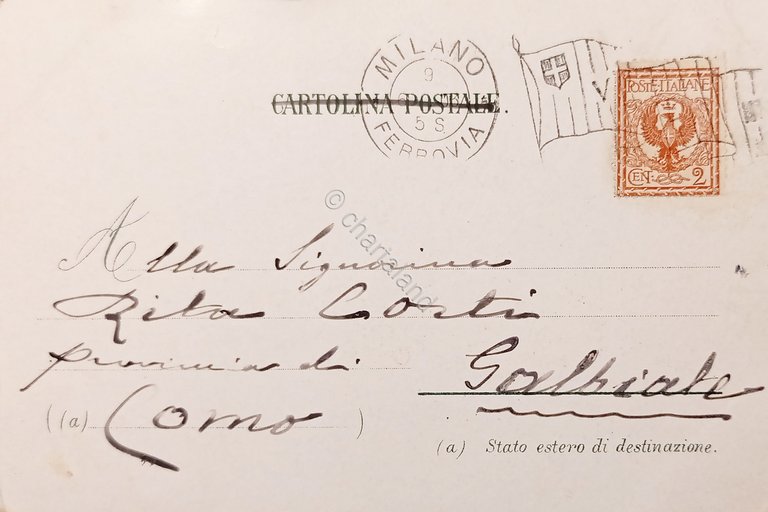 MILANO
9
5 S
FERROVIA
CARTOLINA POSTALE.
POSTE·ITALIANE
CEN. 2
© chartaland
Alla Signorina
Rita Corti
provincia di Galbiate
((a) Como )
(a) Stato estero di destinazione.